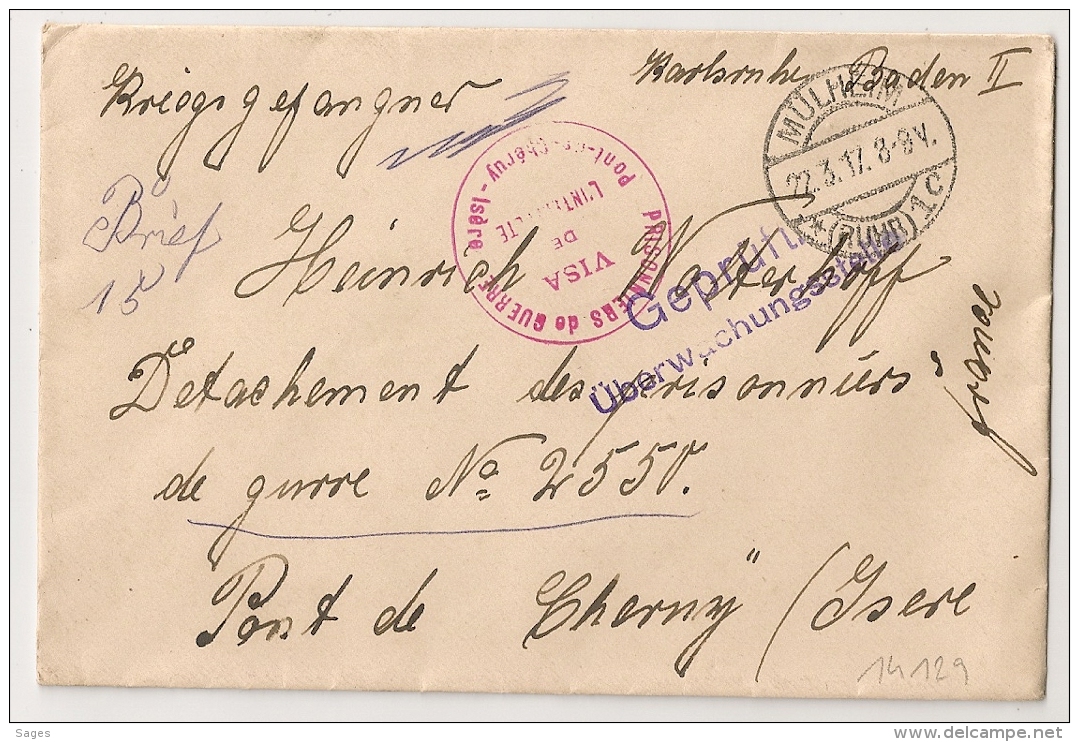 Kriegsgefangner
Karlsruhe Baden II
MÜLHEIM
22.3.17. 8-9V.
*(RUHR) 1C
Brief
15
PRISONNIERS de GUERRE
Pont-de-Chéruy-Isère
VISA
DE
Heinrich
Geprüft
Überwachungsstelle
Detachement des prisonniers
france
de gurre No 2550.
Pont de Cheruy (Isere
14129
Sages
delcampe.net